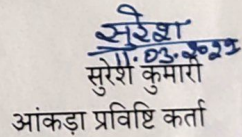 सुरेश
11.03.2025
सुरेश कुमारी
आंकड़ा प्रविष्टि कर्ता